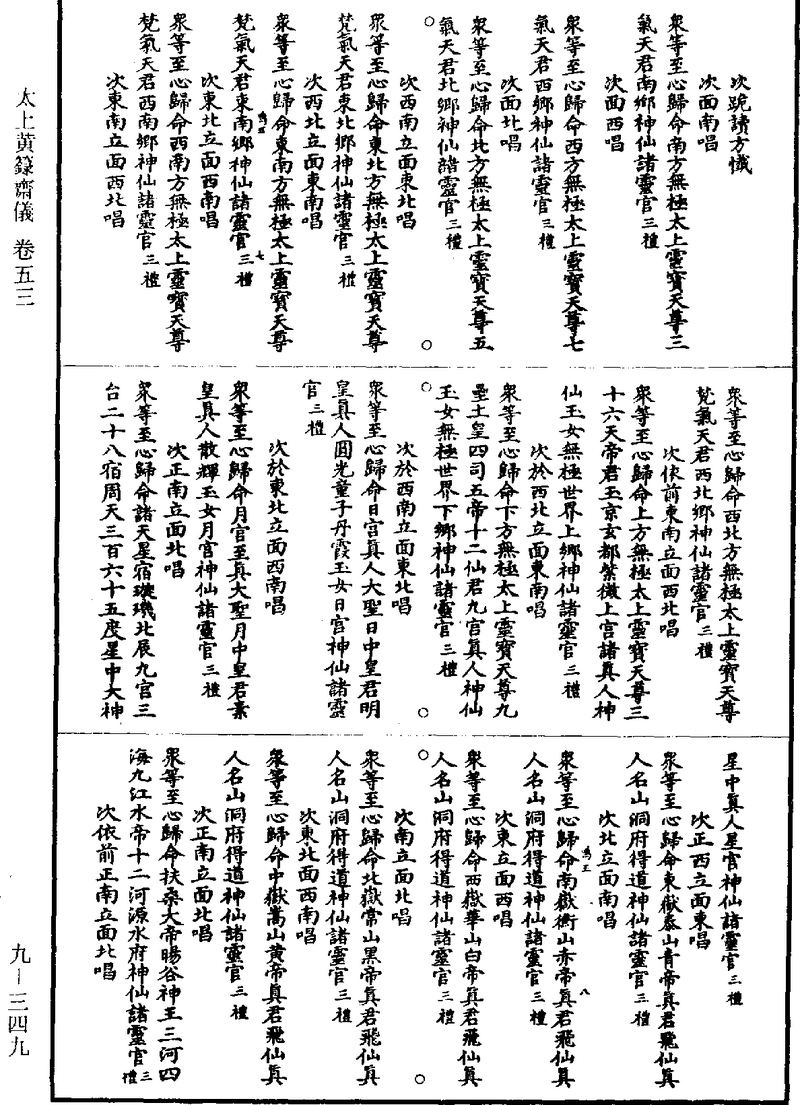 太上黄籙齋儀 卷五三
九—三四九
次跪讀方懺
次面南唱
衆等至心歸命南方無極太上靈寶天尊三
氣天君南鄉神仙諸靈官三禮
次面西唱
衆等至心歸命西方無極太上靈寶天尊七
氣天君西鄉神仙諸靈官三禮
次面北唱
衆等至心歸命北方無極太上靈寶天尊五
氣天君北鄉神仙諸靈官三禮
次西南立面東北唱
衆等至心歸命東北方無極太上靈寶天尊
梵氣天君東北鄉神仙諸靈官三禮
次西北立面東南唱
衆等至心歸命東南方無極太上靈寶天尊
梵氣天君東南鄉神仙諸靈官三禮
七
次東北立面西南唱
衆等至心歸命西南方無極太上靈寶天尊
梵氣天君西南鄉神仙諸靈官三禮
次東南立面西北唱
衆等至心歸命西北方無極太上靈寶天尊
梵氣天君西北鄉神仙諸靈官三禮
次依前東南立面西北唱
衆等至心歸命上方無極太上靈寶天尊三
十六天帝君玉京玄都紫微上宫諸真人神
仙玉女無極世界上鄉神仙諸靈官三禮
次於西北立面東南唱
衆等至心歸命下方無極太上靈寶天尊九
壘土皇四司五帝十二仙君九宫真人神仙
玉女無極世界下鄉神仙諸靈官三禮
次於西南立面東北唱
衆等至心歸命日宫真人大聖日中皇君明
皇真人圓光童子丹霞玉女日宫神仙諸靈
官三禮
次於東北立面西南唱
衆等至心歸命月宫至真大聖月中皇君素
皇真人散輝玉女月宫神仙諸靈官三禮
次正南立面北唱
衆等至心歸命諸天星宿璇璣北辰九宫三
台二十八宿周天三百六十五度星中大神
星中真人星宫神仙諸靈官三禮
次正西立面東唱
衆等至心歸命東嶽泰山青帝真君飛仙真
人名山洞府得道神仙諸靈官三禮
次北立面南唱
衆等至心歸命南嶽衡山赤帝真君飛仙真
八
人名山洞府得道神仙諸靈官三禮
次東立面西唱
衆等至心歸命西嶽華山白帝真君飛仙真
人名山洞府得道神仙諸靈官三禮
次南立面北唱
衆等至心歸命北嶽常山黑帝真君飛仙真
人名山洞府得道神仙諸靈官三禮
次東北面西南唱
衆等至心歸命中嶽嵩山黄帝真君飛仙真
人名山洞府得道神仙諸靈官三禮
次正南立面北唱
衆等至心歸命扶桑大帝暘谷神王三河四
海九江水帝十二河源水府神仙諸靈官三禮
次依前正南立面北唱